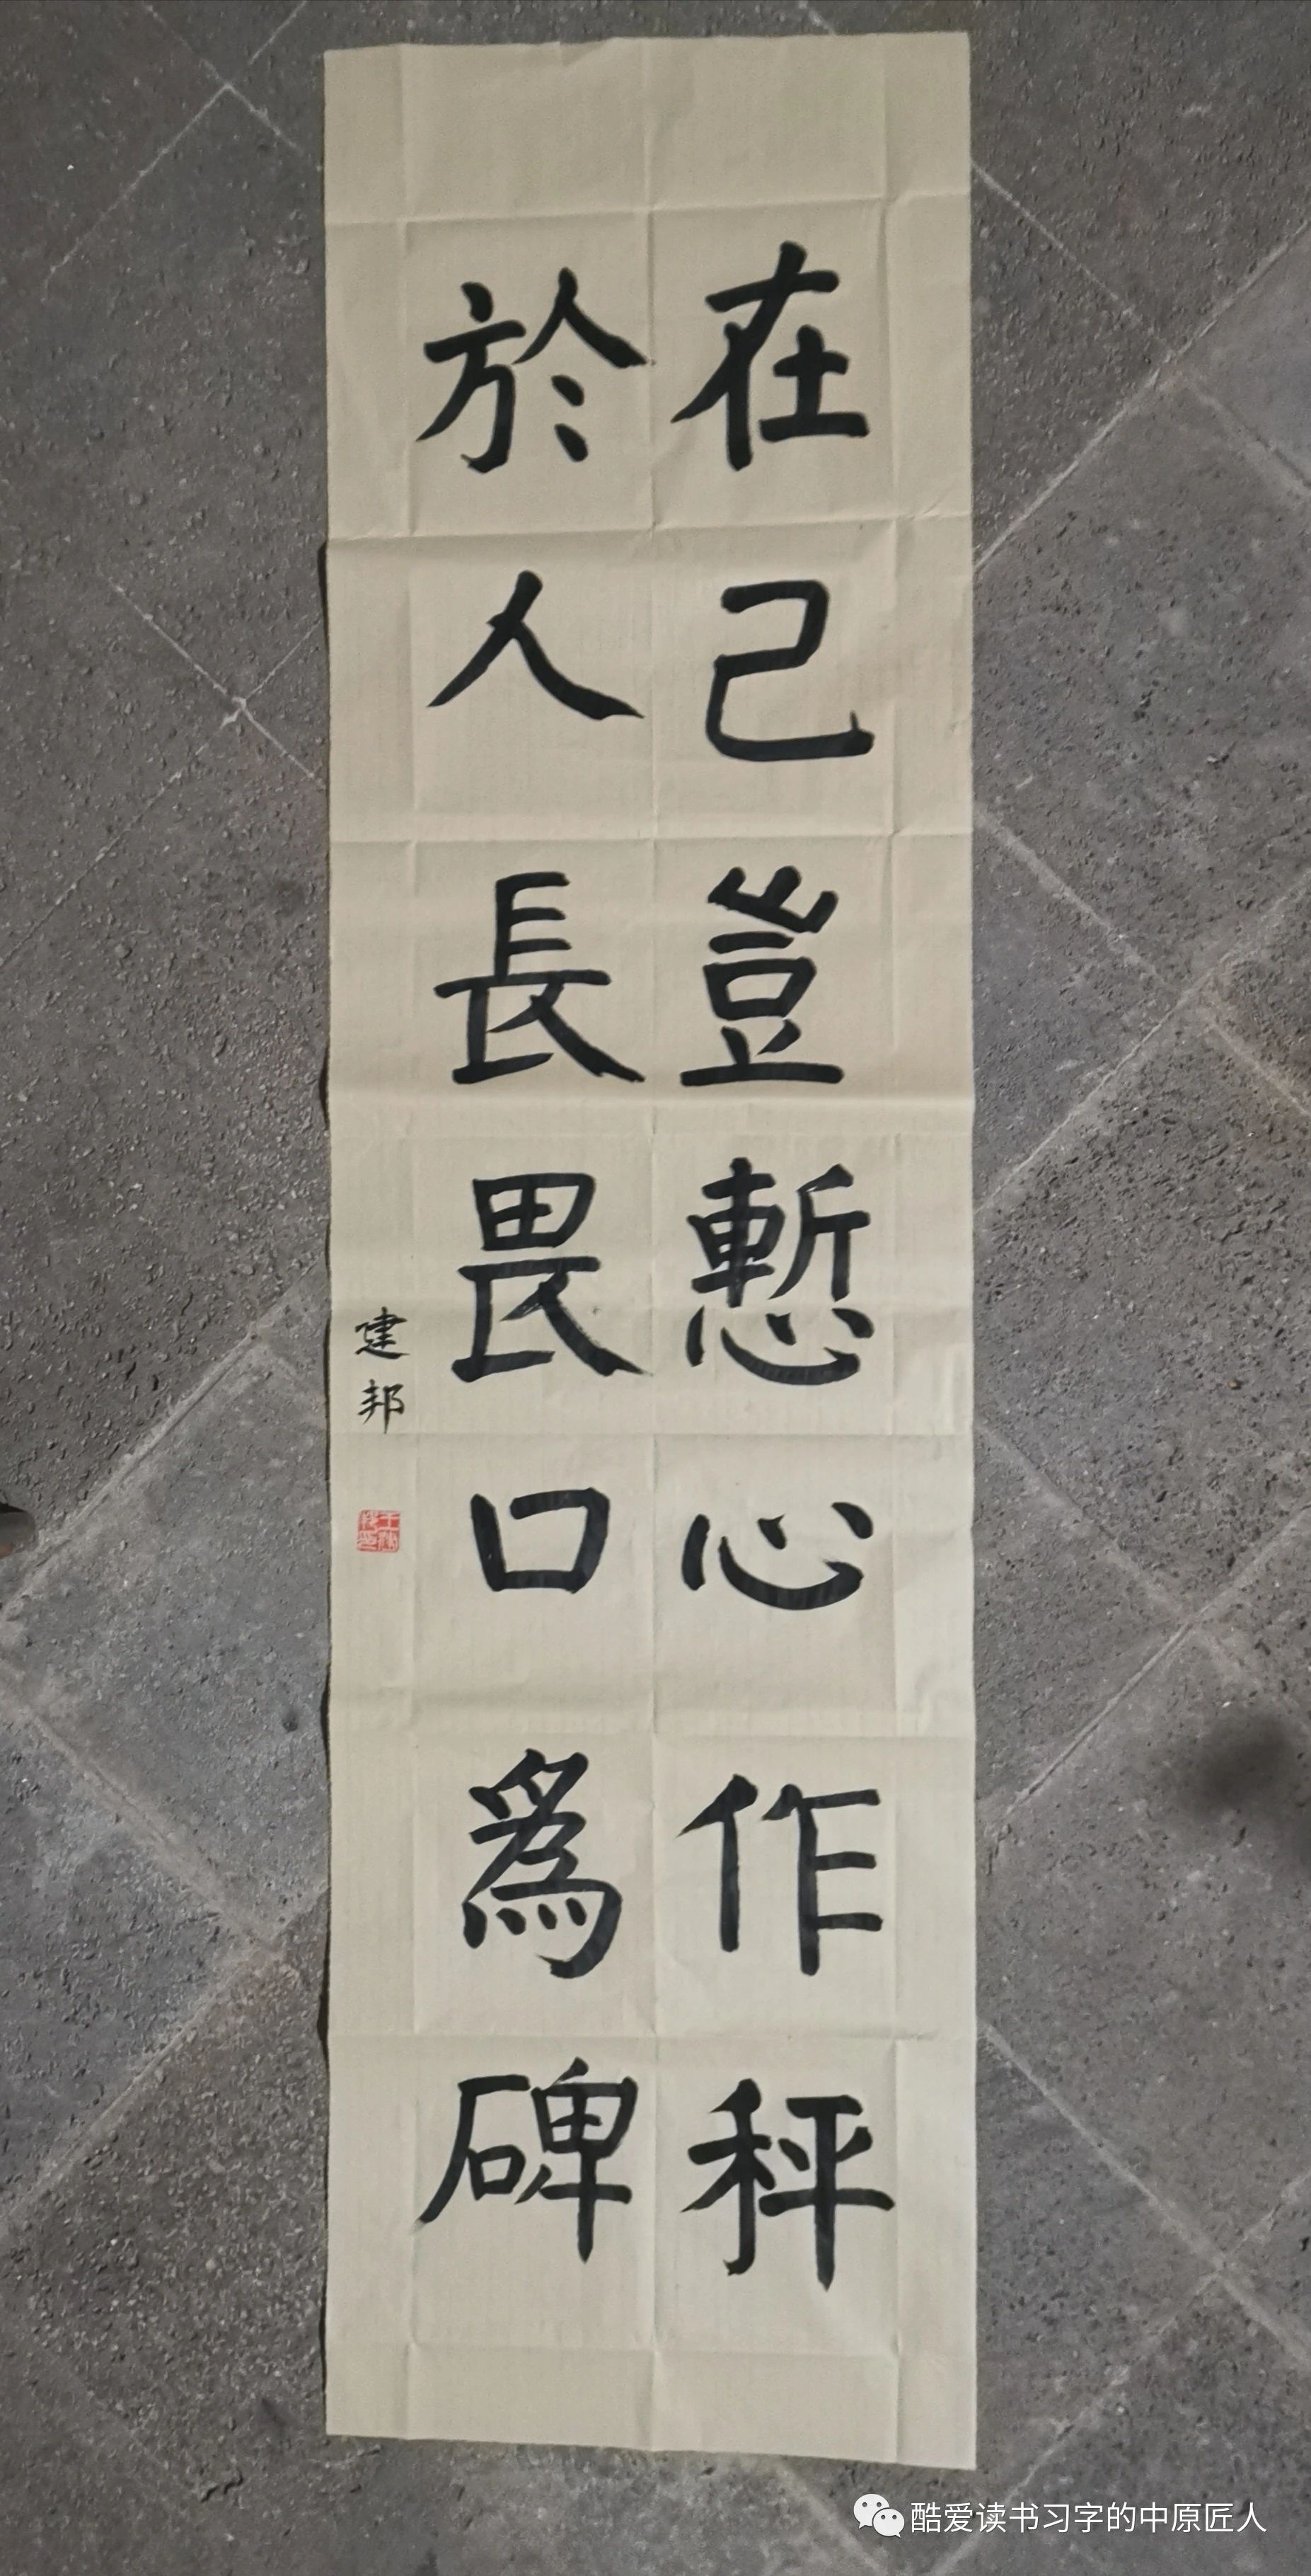 在己豈慙心作秤
於人長畏口為碑
建邦
酷爱读书习字的中原匠人